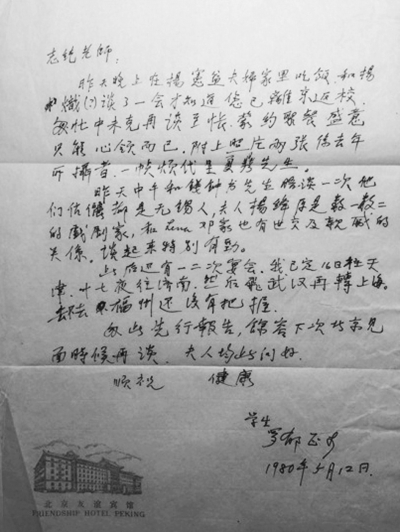 志纯老師:
昨天晚上在楊憲益夫婦家里吃飯,和楊
熾(?)谈了一会才知道您已離京返校,
匆忙中未克再談互恨,蒙约聚餐盛意
只能心领而已.附上照片两张係去年
所攝者.一幀烦代呈夏鼐先生.
昨天中午和錢鍾书先生暗谈一次他
們伉儷都是无锡人,夫人楊絳原是数一数二
的戲剧家,和Lena邓家也有世交及親戚的
关係.谈起来特别有劲.
此后还有一二次宴会.我已定16日往天
津,十七夜往济南.然后飛武汉再轉上海.
去不去福州还没有把握.
匆此先行報告,餘容下次北京见
面時候再谈.夫人均此问好.
順祝 健康
学生
罗郁正上
1980年5月12日.
北京友谊宾馆
FRIENDSHIP HOTEL PEKING